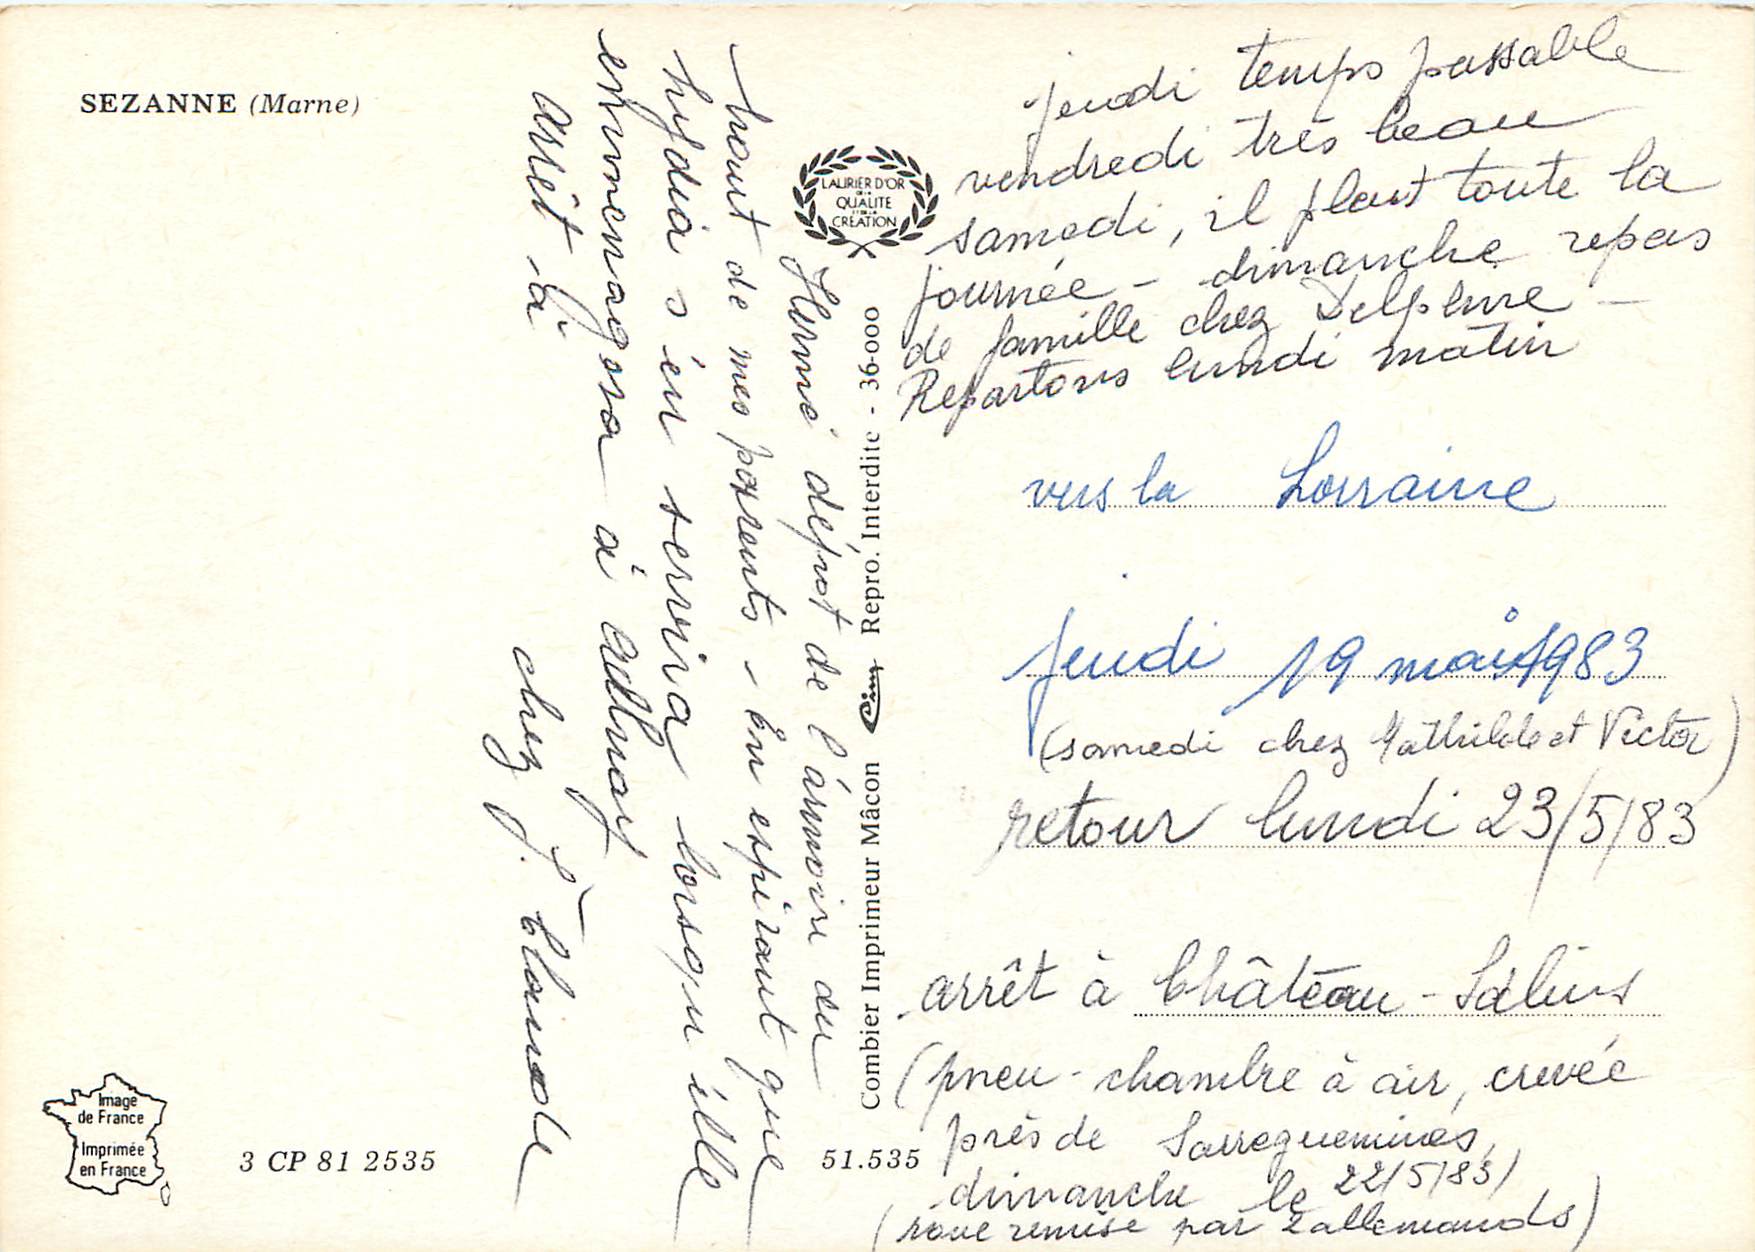 SEZANNE (Marne)
Hermé dépot de l'armoire du
haut de mes parents - En espérant que
Lydia s'en servira lorsqu'elle
emmenagera à Aulnay
arrêt là
chez J. Claude
LAURIER D'OR
DE LA
QUALITE
ET DE LA
CRÉATION
Combier Imprimeur Mâcon Cim Repro. Interdite - 36-000
jeudi temps passable
vendredi très beau
samedi, il pleut toute la
journée - dimanche repas
de famille chez Delphine -
Repartons lundi matin
vers la Lorraine
jeudi 19 mai 1983
(samedi chez Mathilde et Victor)
retour lundi 23/5/83
arrêt à Château-Salins
(pneu - chambre à air, crevée
près de Sarreguemines,
dimanche le 22/5/83)
(roue remise par 2 allemands)
Image
de France
Imprimée
en France
3 CP 81 2535
51.535